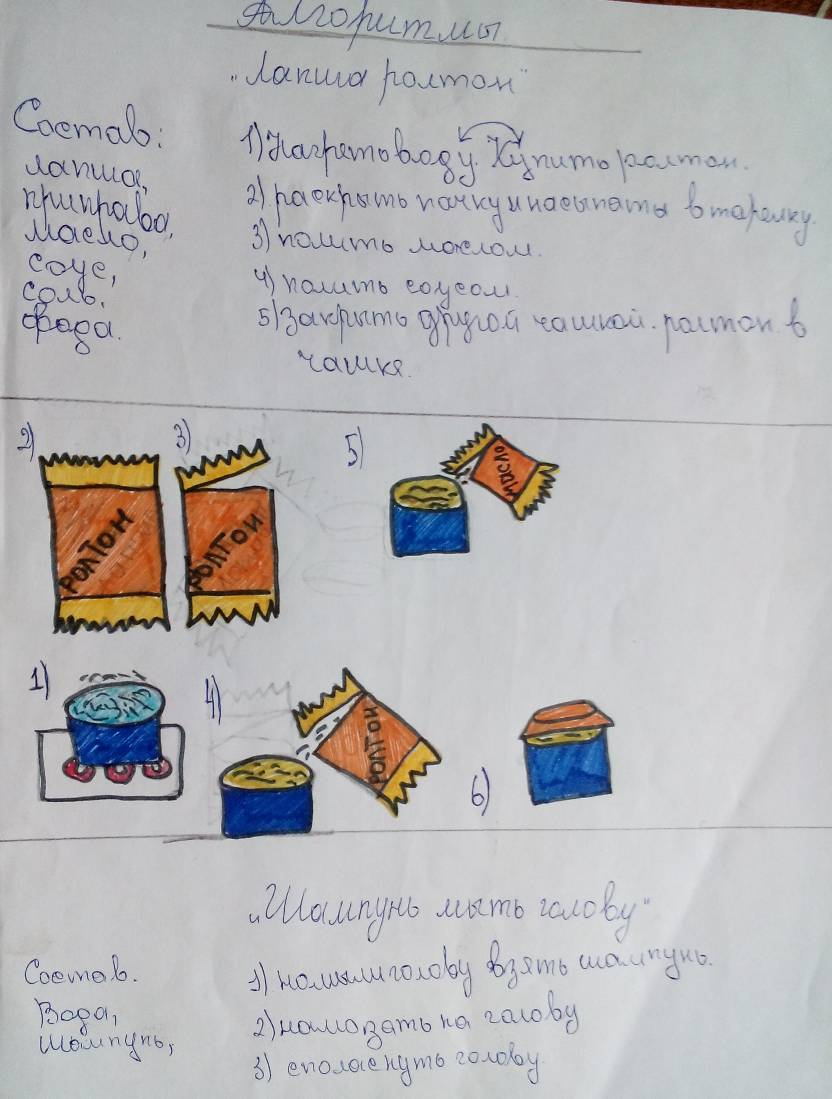 Алгоритмы
"Лапша ролтон"
Состав:
лапша,
приправа,
масло,
соус,
соль,
вода.
1) Нагреть воду. Купить ролтон.
2) раскрыть пачку и насыпать в тарелку.
3) полить маслом.
4) полить соусом.
5) Закрыть другой чашкой. ролтон в
чашке.
2)
РОЛТОН
3)
РОЛТОН
5)
МАСЛО
1)
4)
РОЛТОН
6)
"Шампунь мыть голову"
Состав.
Вода,
Шампунь,
1) голову взять шампунь.
2) намазать на голову
3) споласнуть голову.